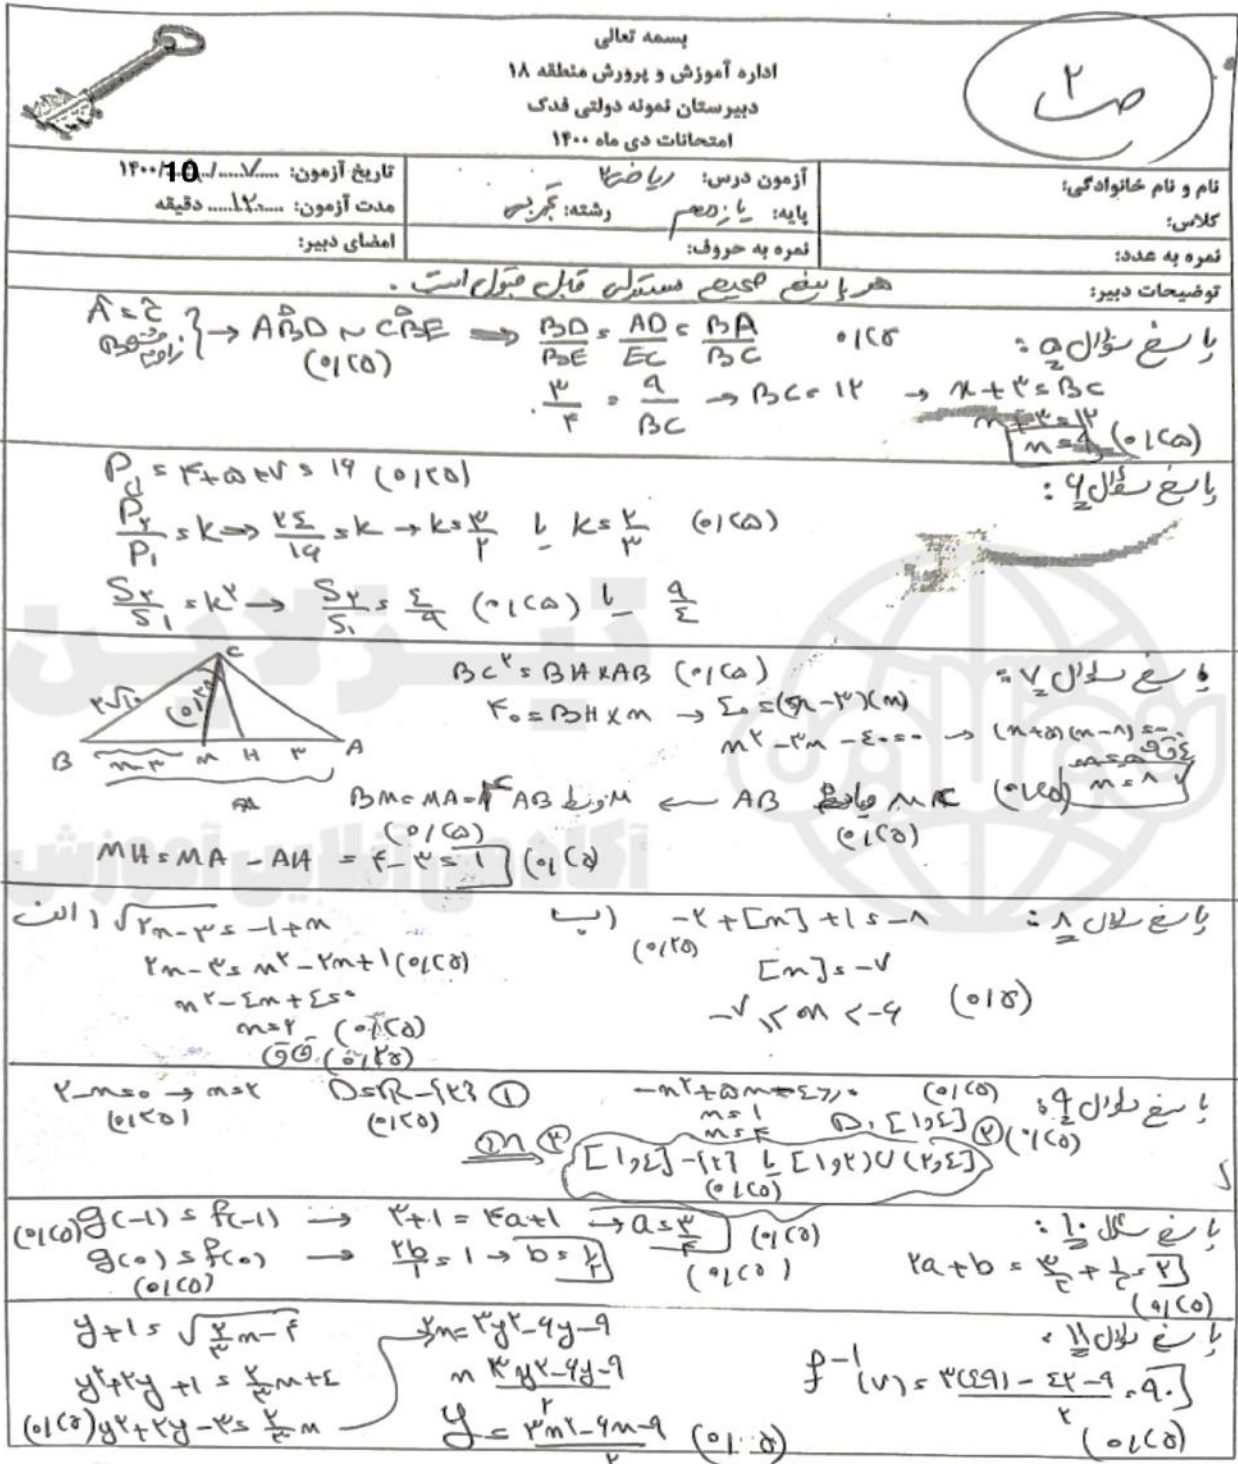 بسمه تعالی
اداره آموزش و پرورش منطقه ۱۸
دبیرستان نمونه دولتی فدک
امتحانات دی ماه ۱۴۰۰
ص ۲
نام و نام خانوادگی:
کلاس:
نمره به عدد:
آزمون درس: ریاضی ۲
پایه: یازدهم رشته: تجربی
نمره به حروف:
تاریخ آزمون: ۷/10/۱۴۰۰
مدت آزمون: ۱۲۰ دقیقه
امضای دبیر:
توضیحات دبیر: هر پاسخ صحیح مستدلی قابل قبول است.
پاسخ سؤال ۵:
Â = Ĉ
→ ABD ~ CBE ⇒ BD/BE = AD/EC = BA/BC ۰/۲۵
(۰/۲۵)
۳/۴ = ۹/BC → BC = ۱۲ → x + ۳ = BC
x + ۳ = ۱۲
x = ۹ (۰/۲۵)
پاسخ سؤال ۶:
P₁ = ۴+۵+۷ = ۱۶ (۰/۲۵)
P₂/P₁ = k ⇒ ۲۴/۱۶ = k → k = ۳/۲ یا k = ۲/۳ (۰/۲۵)
S₂/S₁ = k² → S₂/S₁ = ۴/۹ (۰/۲۵) یا ۹/۴
پاسخ سوال ۷:
C
۲√۱۰
(۰/۲۵)
B x-۳ M H ۳ A
BC² = BH × AB (۰/۲۵)
۴۰ = BH × x → ۴۰ = (x-۳)(x)
x² - ۳x - ۴۰ = ۰ → (x+۵)(x-۸) = ۰
x = ۸ (۰/۲۵)
MC میانه AB ← M وسط AB BM = MA = ۴
(۰/۲۵) (۰/۲۵)
MH = MA - AH = ۴-۳ = ۱ (۰/۲۵)
پاسخ سوال ۸:
الف) √۲x-۳ = -۱+x
۲x-۳ = x²-۲x+۱ (۰/۲۵)
x²-۴x+۴=۰
x=۲ (۰/۲۵)
ق ق (۰/۲۵)
ب) -۲+[x]+۱ = -۸
(۰/۲۵)
[x] = -۷
-۷ ≤ x < -۶ (۰/۵)
پاسخ سوال ۹:
۲-x=۰ → x=۲ D=R-{۲} ①
(۰/۲۵) (۰/۲۵)
-x²+۵x-۴ ≥ ۰ (۰/۲۵)
x=۱
x=۴ D: [۱,۴] ② (۰/۲۵)
①∩② [۱,۴]-{۲} یا [۱,۲)∪(۲,۴]
(۰/۲۵)
پاسخ سوال ۱۰:
(۰/۲۵) g(-۱) = f(-۱) → ۳+۱ = ۴a+۱ → a = ۳/۴ (۰/۲۵)
g(۰) = f(۰) → ۲b/۱ = ۱ → b = ۱/۲ (۰/۲۵)
(۰/۲۵)
۲a+b = ۳/۲ + ۱/۲ = ۲
(۰/۲۵)
پاسخ سوال ۱۱:
y+۱ = √۲/۳x-۴
y²+۲y+۱ = ۲/۳x+۴
(۰/۲۵) y²+۲y-۳ = ۲/۳x
۲x = ۳y²-۶y-۹
x = ۳y²-۶y-۹/۲
y = ۳x²-۶x-۹/۲ (۰/۵)
f⁻¹(۷) = ۳(۴۹)-۴۲-۹/۲ = ۹۰
(۰/۲۵)